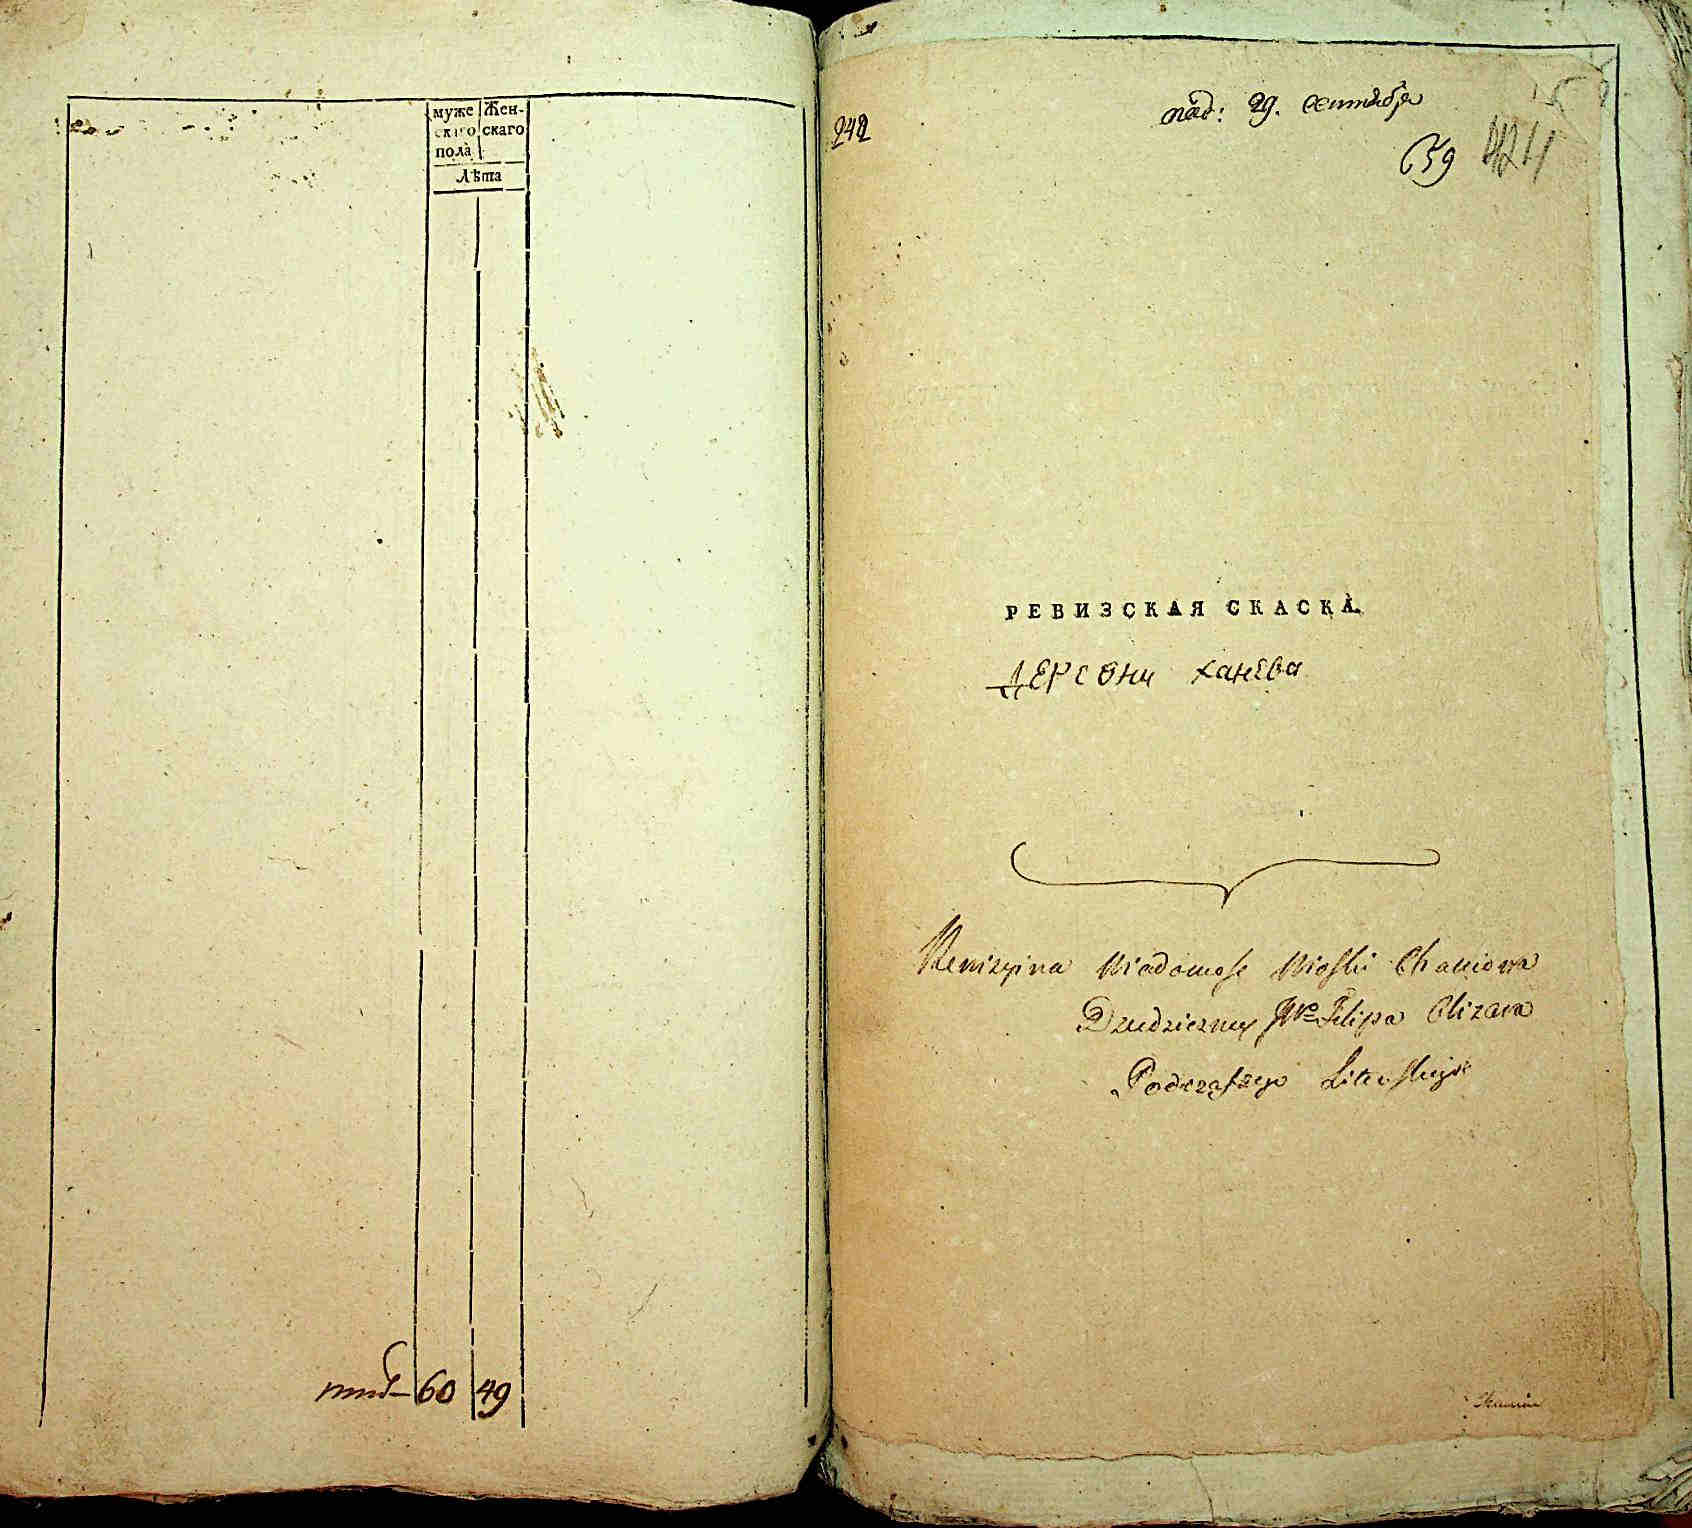 муже Жен-
скаго скаго
пола
Лѣта
60 49
242
под: 29. Сентября
659 424
РЕВИЗСКАЯ СКАСКА
ДЕРЕВНИ ханЕва
Rewizyina Wiadomosc Wioski Chaniowa
Dziedziczney JWo Filipa Olizara
Podczaszego Litewskiego